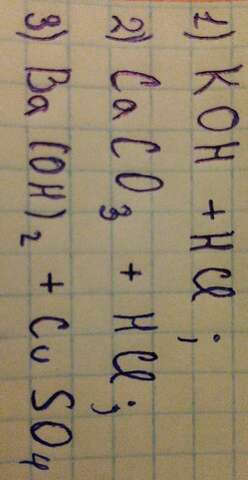 1) KOH + HCl ;
2) CaCO₃ + HCl ;
3) Ba(OH)₂ + CuSO₄